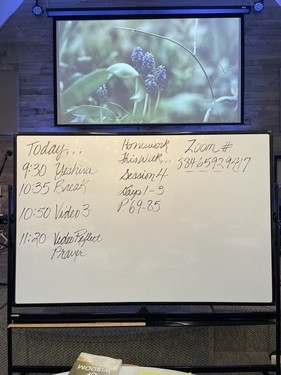 Today...
9:30 Yeshiva
10:35 Break
10:50 Video 3
11:20 Video Reflect
Prayer
Homework
this week...
Session 4
Days 1-3
P 69-85
Zoom #
OF
WISDOM